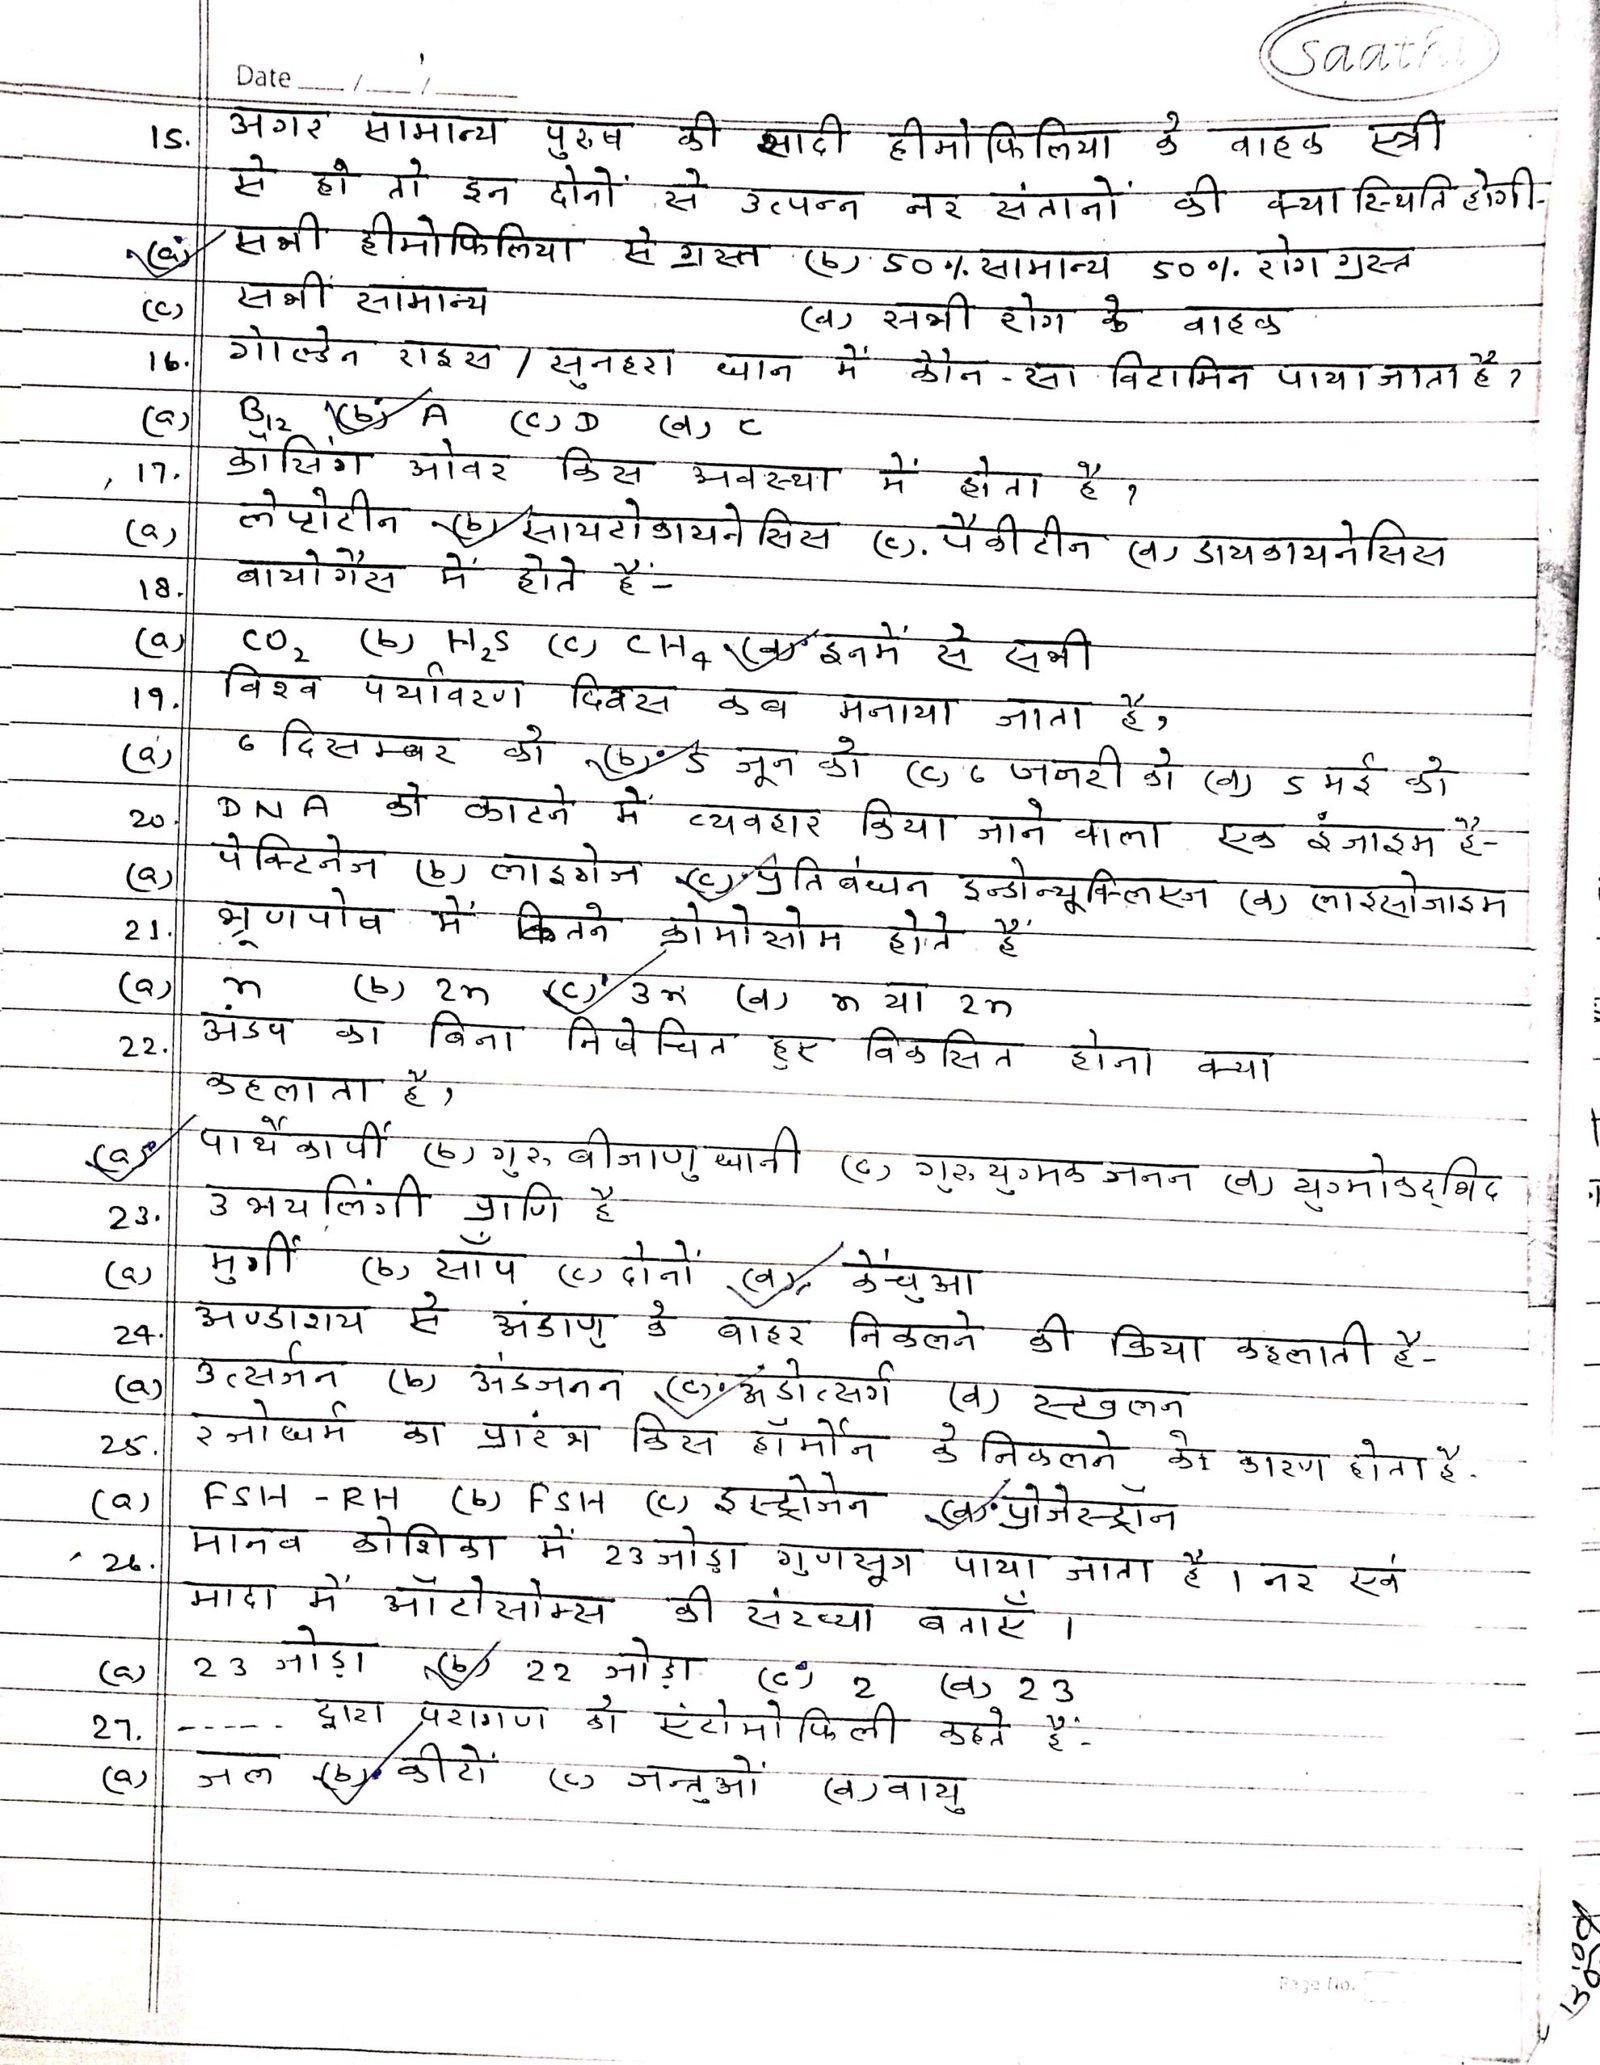 saathi
Date __/__/____
15. अगर सामान्य पुरुष की सादी हीमोफिलिया के वाहक स्त्री
से हो तो इन दोनों से उत्पन्न नर संतानों की क्या स्थिति होगी-
(a) सभी हीमोफिलिया से ग्रस्त (b) 50% सामान्य 50% रोग ग्रस्त
(c) सभी सामान्य (d) सभी रोग के वाहक
16. गोल्डेन राइस / सुनहरा धान में कौन-सा विटामिन पाया जाता है?
(a) B12 (b) A (c) D (d) C
17. क्रॉसिंग ओवर किस अवस्था में होता है?
(a) लेप्टोटीन (b) सायटोकायनेसिस (c). पैकीटीन (d) डायकायनेसिस
18. बायोगैस में होते हैं-
(a) CO2 (b) H2S (c) CH4 (d) इनमें से सभी
19. विश्व पर्यावरण दिवस कब मनाया जाता है?
(a) 6 दिसम्बर को (b) 5 जून को (c) 6 जनरी को (d) 5 मई को
20. DNA को काटने में व्यवहार किया जाने वाला एक इंजाइम है-
(a) पेक्टिनेज (b) लाइगेज (c) प्रतिबंधन इन्डोन्यूक्लिएज (d) लाइसोजाइम
21. भ्रूणपोष में कितने क्रोमोसोम होते हैं
(a) n (b) 2n (c) 3n (d) n या 2n
22. अंडप का बिना निषेचित हुए विकसित होना क्या
कहलाता है?
(a) पार्थेकार्पी (b) गुरुबीजाणुधानी (c) गुरुयुग्मकजनन (d) युग्मोकद्भिद
23. उभयलिंगी प्राणि है
(a) मुर्गी (b) साँप (c) दोनों (d) केंचुआ
24. अण्डाशय से अंडाणु के बाहर निकलने की क्रिया कहलाती है-
(a) उत्सर्जन (b) अंडजनन (c) अंडोत्सर्ग (d) स्खलन
25. रजोधर्म का प्रारंभ किस हॉर्मोन के निकलने के कारण होता है.
(a) FSH-RH (b) FSH (c) इस्ट्रोजेन (d) प्रोजेस्ट्रॉन
26. मानव कोशिका में 23 जोड़ा गुणसूत्र पाया जाता है। नर एवं
मादा में ऑटोसोम्स की संख्या बताएँ।
(a) 23 जोड़ा (b) 22 जोड़ा (c) 2 (d) 23
27. ----- द्वारा परागण को एंटोमोफिली कहते हैं-
(a) जल (b) कीटों (c) जन्तुओं (d) वायु
Page No.